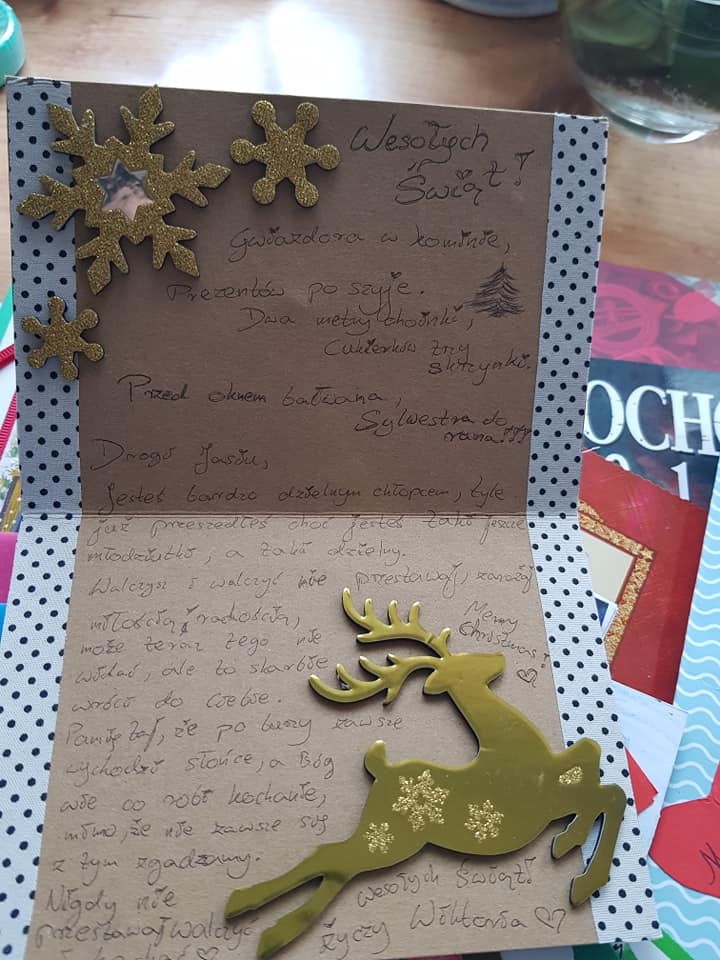 Wesołych
Świąt!
Gwiazdora w kominie,
Prezentów po szyje.
Dwa metry choinki,
Cukierków trzy
skrzynki.
Przed oknem bałwana,
Sylwestra do
rana!!!
Drogi Jasiu,
Jesteś bardzo dzielnym chłopcem, tyle
już przeszedłeś choć jesteś taki jeszcze
młodziutki, a taki dzielny.
Walczysz i walczyć nie przestawaj, zarażaj
miłością, radością,
może teraz tego nie
widać, ale to skarbie
wróci do ciebie.
Pamiętaj, że po burzy zawsze
wychodzi słońce, a Bóg
wie co robi kochanie,
mimo, że nie zawsze się
z tym zgadzamy.
Nigdy nie
przestawaj walczyć
kochać
Merry
Christmas!
Wesołych Świąt!
życzy Wiktoria
OCH